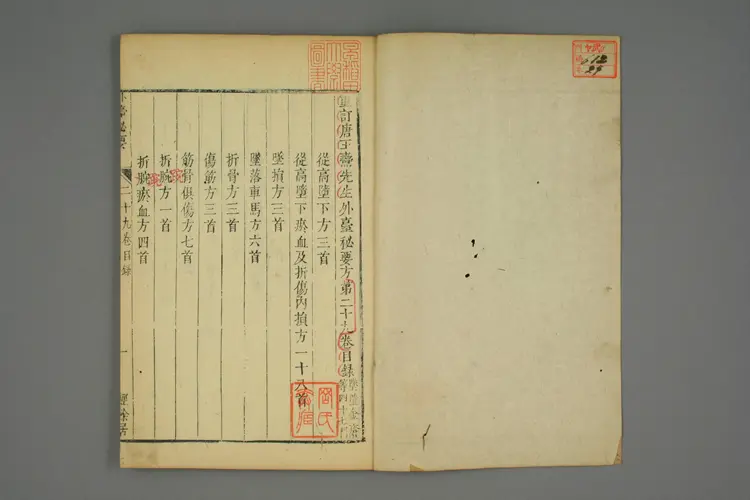 重訂唐王燾先生外臺秘要方第二十九卷目錄
從高墮下方三首
從高墮下瘀血及折傷內損方一十八首
墜損方三首
墜落車馬方六首
折骨方三首
傷筋方三首
筋骨俱傷方七首
折腕方一首
折腕瘀血方四首
二十九卷目錄
一
經餘居